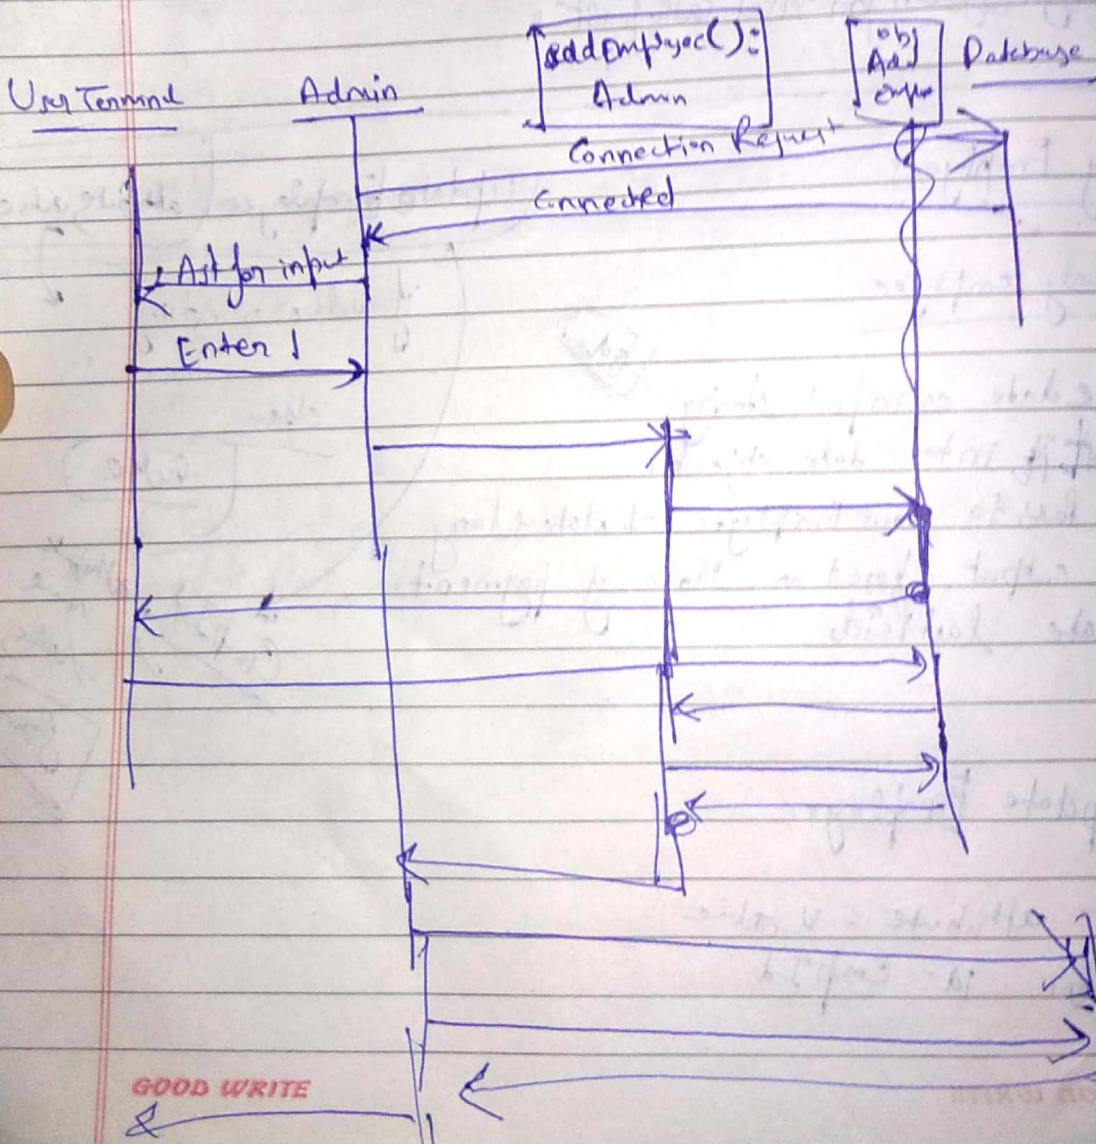 User Terminal
Admin
addEmployee():
Admin
obj
Add
Database
Connection Request
Connected
Ask for input
Enter 1
GOOD WRITE